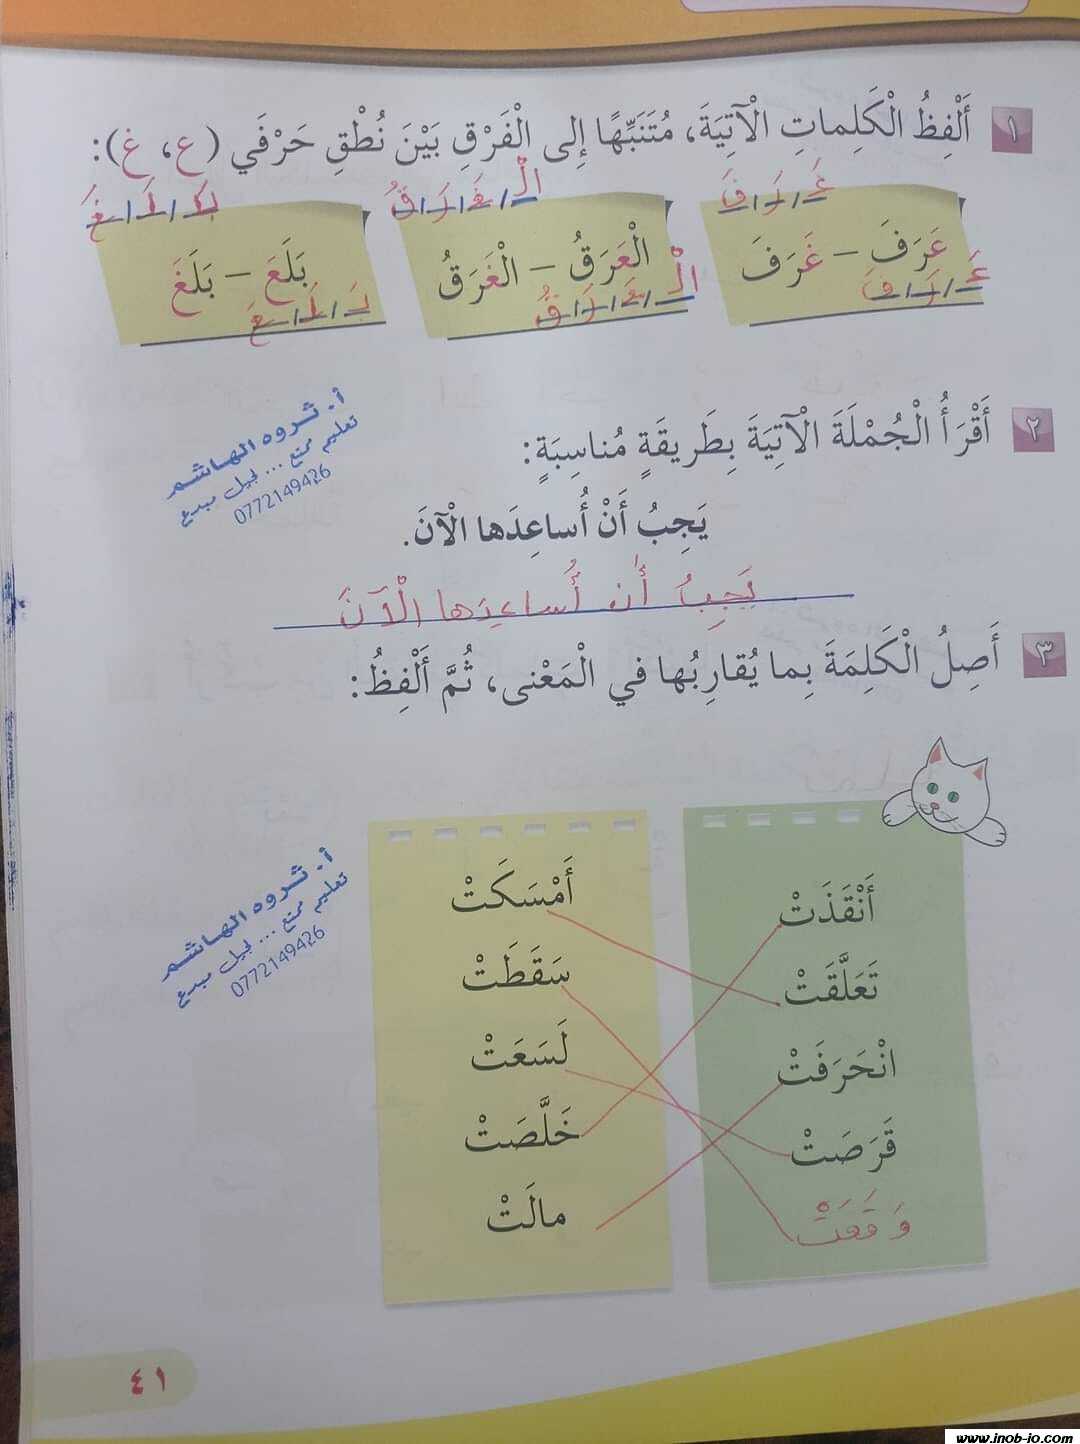 ١ أَلْفِظُ الْكَلِماتِ الْآتِيَةَ، مُتَنَبِّهًا إِلى الْفَرْقِ بَيْنَ نُطْقِ حَرْفَي (ع، غ):
غَ / رَ / فَ
الْ / غَ / رَ / قُ
بَ / لَ / غَ
عَرَفَ – غَرَفَ
الْعَرَقُ – الْغَرَقُ
بَلَعَ – بَلَغَ
عَ / رَ / فَ
الْ / عَ / رَ / قُ
بَ / لَ / عَ
٢ أَقْرَأُ الْجُمْلَةَ الْآتِيَةَ بِطَريقَةٍ مُناسِبَةٍ:
أ. ثروه الهاشم
تعليم ممتع ... لجيل مبدع
0772149426
يَجِبُ أَنْ أُساعِدَها الْآنَ.
يَجِبُ أَن أُساعِدَها الْآنَ
٣ أَصِلُ الْكَلِمَةَ بِما يُقارِبُها في الْمَعْنى، ثُمَّ أَلْفِظُ:
أَنْقَذَتْ
تَعَلَّقَتْ
انْحَرَفَتْ
قَرَصَتْ
وَقَعَتْ
أَمْسَكَتْ
سَقَطَتْ
لَسَعَتْ
خَلَّصَتْ
مالَتْ
أ. ثروه الهاشم
تعليم ممتع ... لجيل مبدع
0772149426
٤١
www.inob-jo.com